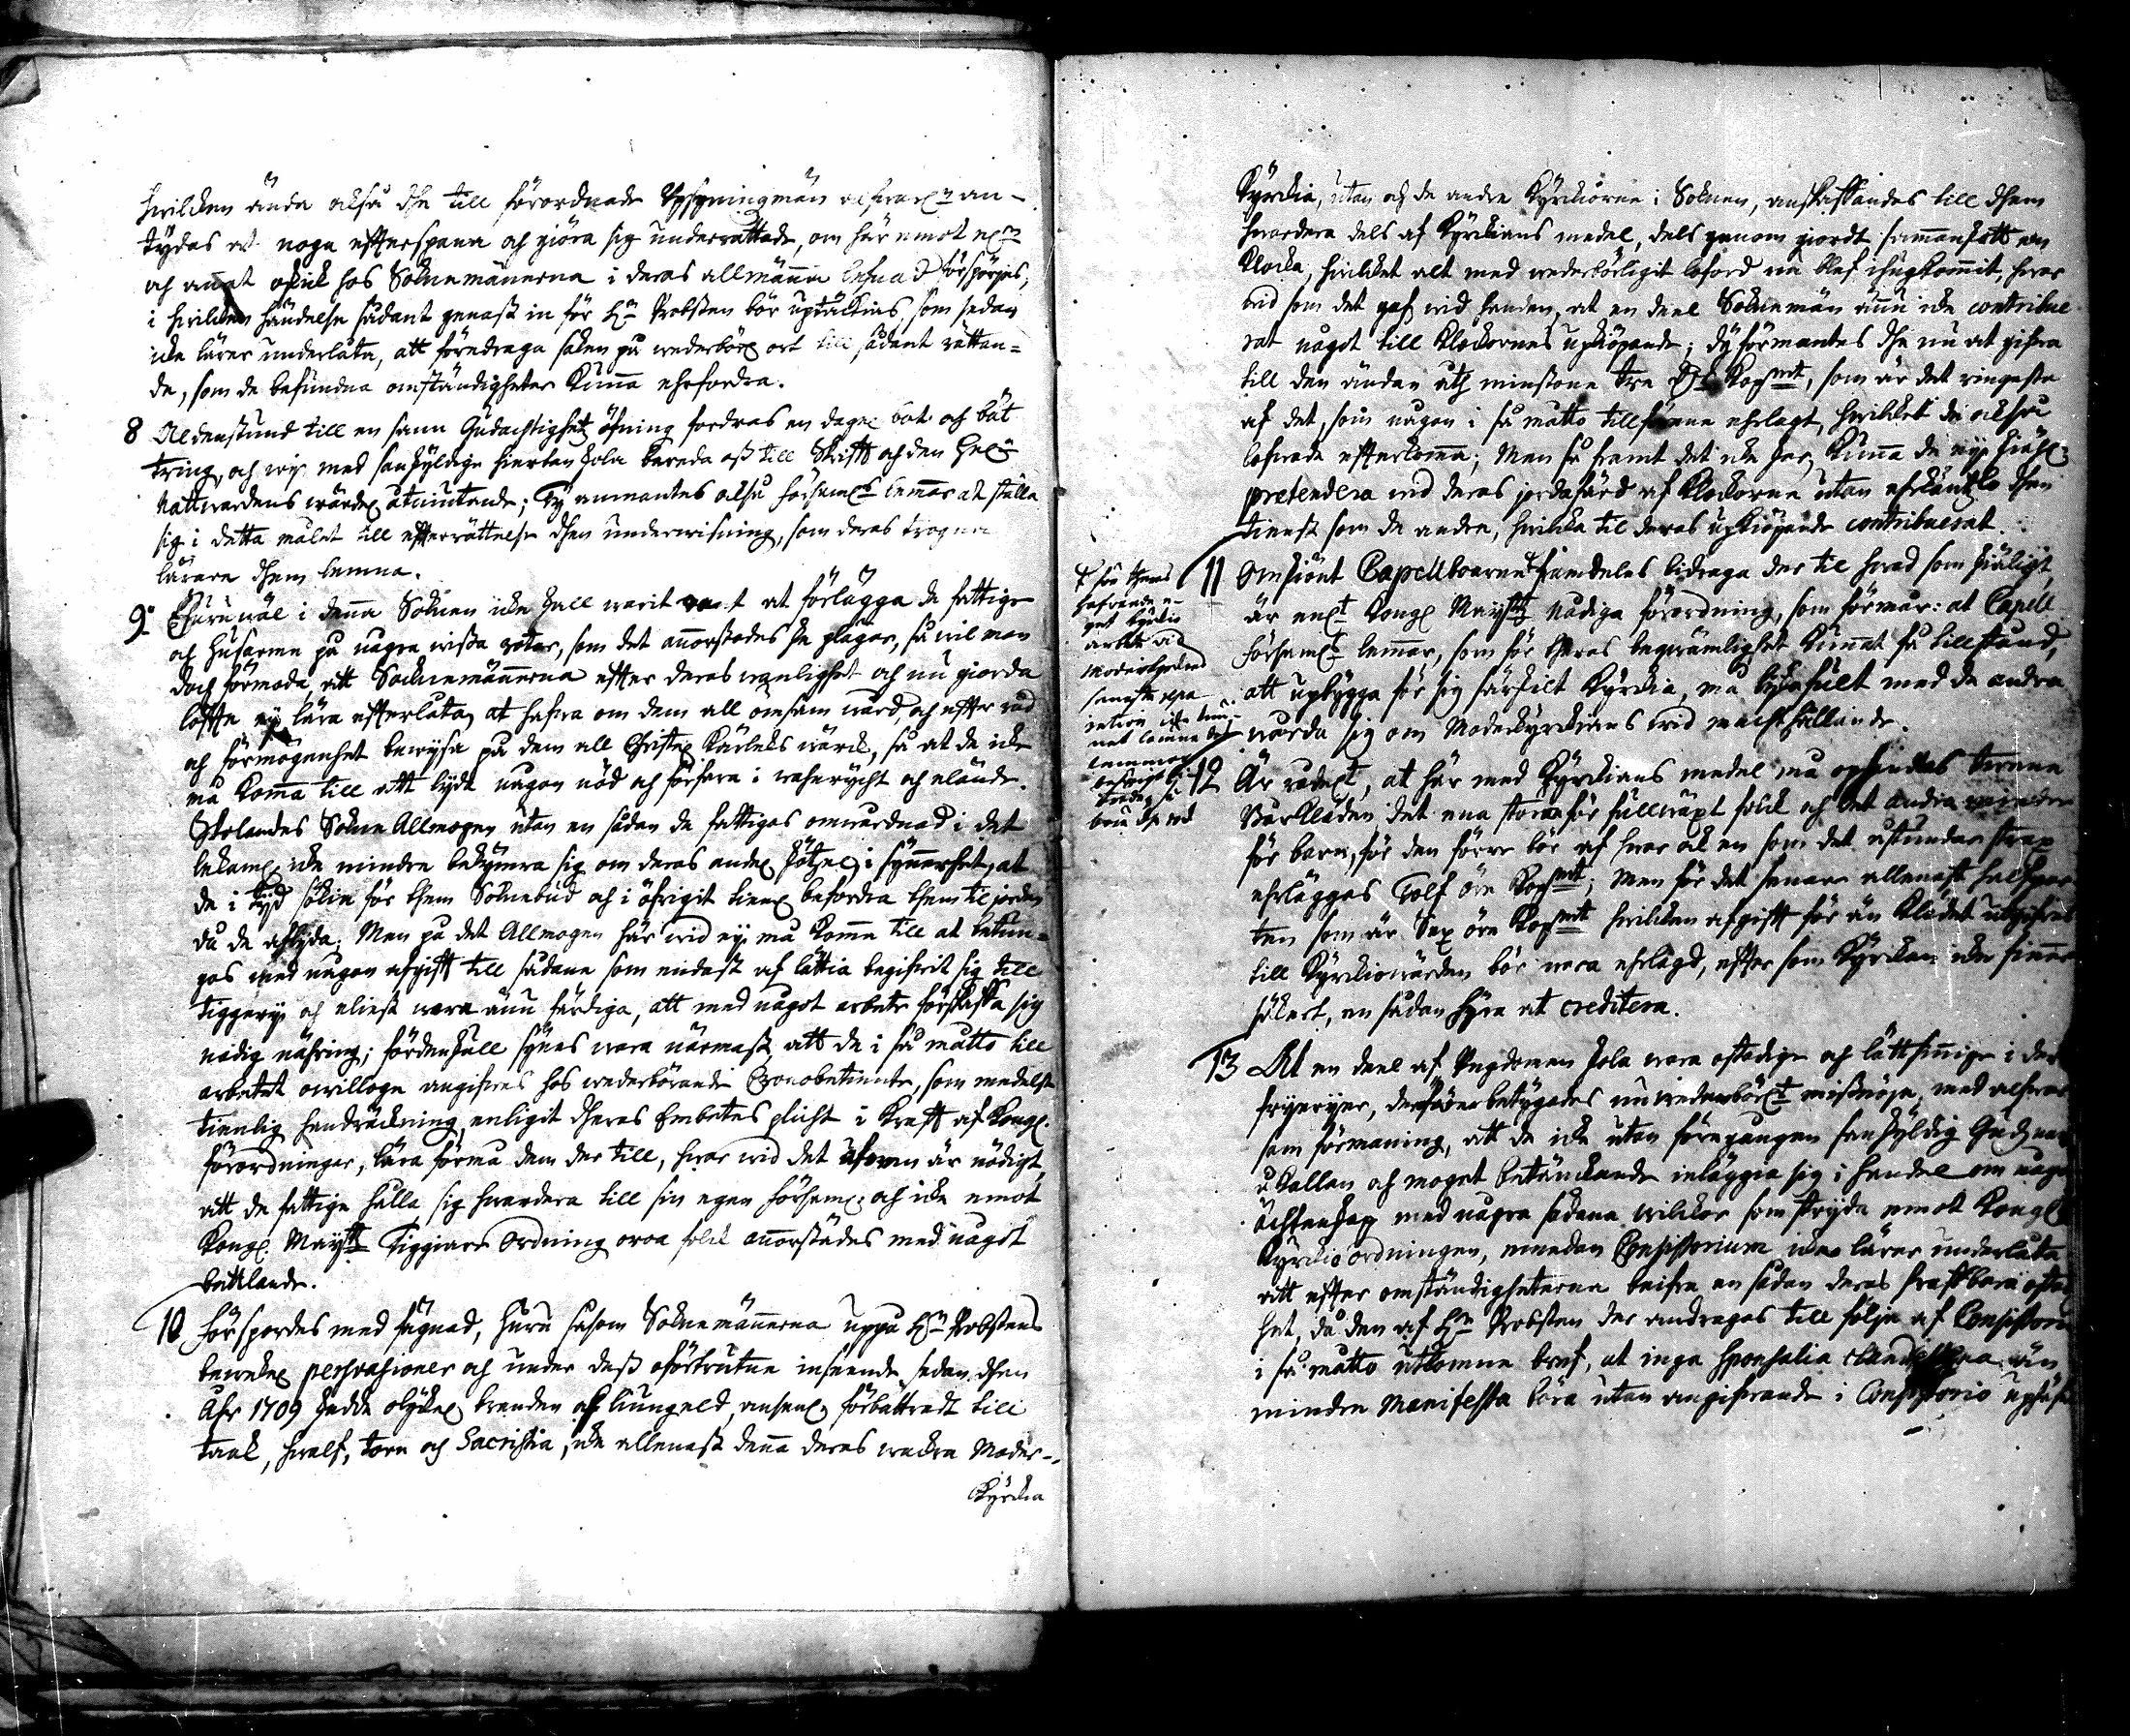 hvilcken ända också dhe till förordnade Upsyningmän alfvarl:n an-
tydas at noga effterspana och giöra sig underrättade, om här emot
och annat oskick hos Soknemännerna i deras allmänna lefnad förspörjes,
i hvilcken händelse sådant genast in för H:n Probsten bör uptäckias, som sedan
icke lärer underlåta, att föredraga saken på wederbörl ort till sådant rättan=
de, som de befundna omständigheter kunna ehrfordra.
8 Aldenstund till en sann Gudachtighetz öfning fordras en dagel bot och bät
tring, och wij med sanskyldige hiertan skola bereda oss till Skrifft och den hel:
Nattwardens wärde: åtniutande; Ty anmantes också Församl:s lemmar at ställa
sig i detta målet till effterrättelse dhen underwisning, som deras trogne
lärare dhem lemna.
9. Ehuruwäl i denna Soknen icke skall warit want at förlägga de fattige
och husarme på några wissa rotar, som det annorstädes ske plägar, så wil man
doch förmoda, att Sockenmännerna effter deras wanlighet och nu giorda
löffte ej lära effterlåta, at hafva om dem all omsam wård, och effter råd
och förmögenhet bewysa på dem all Christel Kärleks wärck, så at de icke
må komma till att lyda någon nöd och förfara i wahnrycht och elände.
Skolandes Sokne Allmogen utan en sådan de fattigas omwårdnad i det
lekaml: icke mindre bekymra sig om deras andel: skötzel, i synnerhet, at
de i tyd sökia för them Soknebud och i öfrigit befordra them til jorden
då de aflyda. Men på det Allmogen här wid ej må komma till at betun=
gas med någon afgifft till sådane som endast af lättia begifvit sig till
tiggery och eliest wara ännu färdiga, att med något arbete förskaffa sig
nödig nähring; fördenskull synes wara närmast, att de i så matto till
arbetet owilloge angifves hos wederbörande Cronobetiente, som medelst
tienlig handräckning enligit dheras Embetes plicht i krafft af Kongl.
förordningar, lära förmå dem der till, hvar wid det äfwen är nödigt
att de fattige hålla sig hwardera till sin egen Församl: och icke emot
Kongl. May:tz Tiggiare Ordning oroa folck annorstädes med något
bettlande.
10 Förspordes med fägnad, huru såsom Soknemännerna uppå H:n Probstens
bewekel persvasioner och under dess oförtrutne inseende sedan dhen
Åhr 1709 skedde olyckel branden af liungeld, ansenl: förbättradt till
taak, hwalf, torn och Sacristia, icke allenast denna deras wackra Moder-
Kyrckia
Kyrckia, utan och de andre Kyrckiorne i Soknen, anskaffandes till dhem
hwardera dels af Kyrckians medel, dels genom giordt sammanskått en
klocka, hvilcket alt med wederbörligit beröm nu blef ihugkommit, hvar
wid som det gaf wid handen, at en deel Soknemän ännu icke contribue
rat något till klockornes upkiöpande; Dy förmantes dhe nu at gifva
till den ändan åth minstone tre D:r Kop:mt, som är det ringeste
af det, som någon i så matto tillförene ehrlagt, hvilcket de också
lofvade effterkomma; Men så framt det icke sker, kunna de ej skiähl:
pretendera wid deras jordafärd af klockorne utan ehrkäntzlo dhen
tienst som de andre, hvilcka til deras upkiöpande contribuerat
11 Omskiönt Capellboarne sammdeles bidraga der til hwad som skiäligt
är enl:t Kongl May:tz Nådiga förordning, som förmår: at Capell
Församl:s lemmar, som för theras beqwämlighet kunnat få tillstånd,
att upbygga för sig särskilt Kyrckia, må lijkafult med de andra
wårda sig om Moderkyrckians wid macht hållande.
12 Är rådel:t, at här med Kyrckians medel må ophandlas twenne
Bårkläden det ena större för fullwäxt folck och det andra mindre
för barn, för den förra bör af hvar ock en som det åstundar strax
ehrläggas Tolf öre Kop:mt; Men för det senare allenast halfpar
ten som är Sex öre Kop:mt hvilcken afgifft för än klädet utgifves
till Kyrckiowärden bör wara ehrlagd, effter som Kyrckan icke finner
säkert, en sådan hyra at creditera.
13 At en deel af Ungdomen skola wara ostadige och lättsinnige i deras
fryeryer, deröfver betygades nu wederbörl:t missnöje, med alfvar
sam förmaning, att de icke utan föregången sanskyldig Gudznamns
åkallan och moget betänckande inläggia sig i handel om någo
ächtenskap med några sådana wilckor som stryda emot Kongl
Kyrckio ordningen, emedan Consistorium icke lärer underlåta
att effter omständigheterne beifra en sådan deras straffbara ostadig
het, då den af H:n Probsten der andrages till följe af Consistorii
i så matto utkomne bref, at inga sponsalia clandestina än
mindre Manifesta böra utan angifvande i Consistorio uphäfv